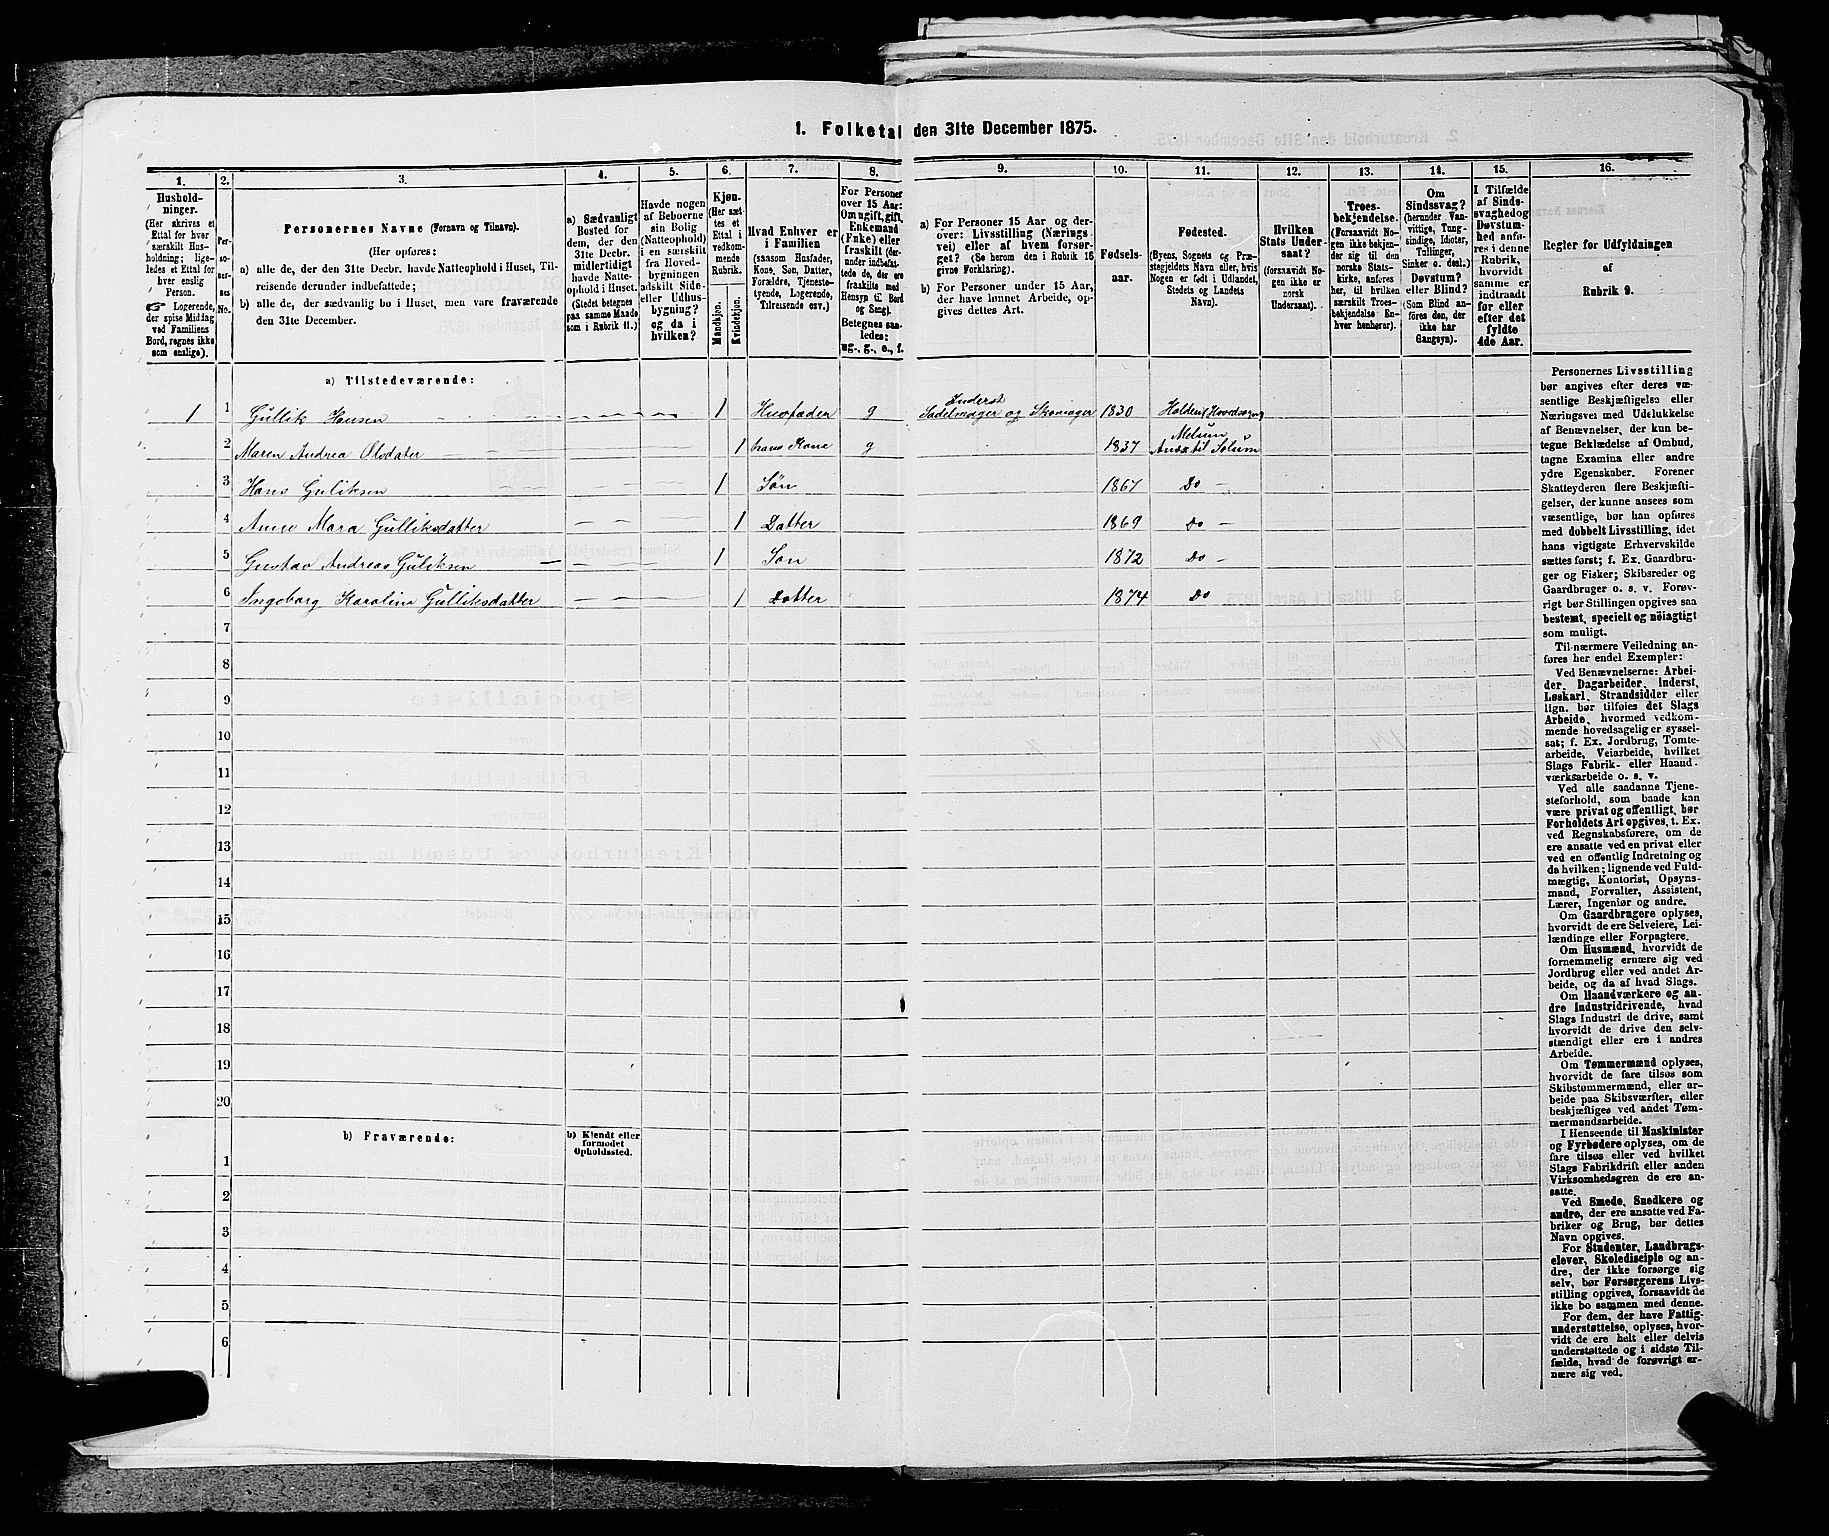 1. Folketal den 31te December 1875.
1. 2. 3. 4. 5. 6. 7. 8. 9. 10. 11. 12. 13. 14. 15. 16.
Husholdninger.
(Her skrives et
Ettal for hver
særskilt Husholdning;
ligeledes et Ettal for
hver enslig
Person.
Logerende,
der spise Middag
ved Familiens
Bord, regnes ikke
som enslige).
Personernes No.
Personernes Navne (Fornavn og Tilnavn).
(Her opføres:
a) alle de, der den 31te Decbr. havde Natteophold i Huset, Tilreisende
derunder indbefattede;
b) alle de, der sædvanlig bo i Huset, men vare fraværende
den 31te December.
a) Sædvanligt
Bosted for
dem, der den
31te Decbr.
midlertidigt
havde Natteophold
i Huset.
(Stedet betegnes
paa samme Maade
som i Rubrik 11.)
Havde nogen
af Beboerne
sin Bolig
(Natteophold)
i en særskilt
fra Hovedbygningen
adskilt Side-
eller Udhusbygning?
og da i
hvilken?
Kjøn.
(Her sættes
et
Ettal i
vedkommende
Rubrik.
Mandkjøn.
Kvindekjøn.
Hvad Enhver er
i Familien
(saasom Husfader,
Kone, Søn, Datter,
Forældre, Tjenestetyende,
Logerende,
Tilreisende osv.)
For Personer
over 15 Aar:
Om ugift, gift,
Enkemand
(Enke) eller
fraskilt (derunder
indbefattede
de, der ere
fraskilte med
Hensyn til Bord
og Seng).
Betegnes saaledes:
ug., g., e., f.
a) For Personer 15 Aar og derover:
Livsstilling (Næringsvei)
eller af hvem forsørget?
(Se herom den i Rubrik 16
givne Forklaring).
b) For Personer under 15 Aar,
der have lønnet Arbeide, opgives
dettes Art.
Fødselsaar.
Fødested.
(Byens, Sognets og Præstegjeldets
Navn eller, hvis
Nogen er født i Udlandet,
Stedets og Landets
Navn).
Hvilken
Stats Undersaat?
(forsaavidt Nogen
ikke er
norsk
Undersaat).
Troesbekjendelse.
(Forsaavidt Nogen
ikke bekjender
sig til den
norske Statskirke,
anføres
her, til hvilken
særskilt Troesbekjendelse
Enhver
henhører).
Om
Sindssvag?
(herunder Vanvittige,
Tungsindige,
Idioter,
Tullinger,
Sinker o. desl.)
Døvstum?
eller Blind?
(Som Blind anføres
den, der
ikke har
Gangsyn).
I Tilfælde
af Sindssvaghed
og
Døvstumhed
anføres
i denne
Rubrik,
hvorvidt
samme er
indtraadt
før eller
efter det
fyldte
4de Aar.
Regler for Udfyldningen
af
Rubrik 9.
a) Tilstedeværende:
1 1 Gullik Hansen 1 Husfader g Inderst Sadelmager og Skomager 1830 Holden
2 Maren Andrea Olsdater 1 hans Kone g 1837 Melum Anex til Solum
3 Hans Guliksen 1 Søn 1867 Do
4 Anne Mara Gulliksdatter 1 Datter 1869 Do
5 Gustav Andreas Guliksen 1 Søn 1872 Do
6 Ingeborg Karoline Gulliksdatter 1 Datter 1874 Do
7
8
9
10
11
12
13
14
15
16
17
18
19
20
b) Fraværende: b) Kjendt eller
formodet
Opholdssted.
1
2
3
4
5
6
Personernes Livsstilling
bør angives efter deres væsentlige
Beskjæftigelse eller
Næringsvei med Udelukkelse
af Benævnelser, der kun betegne
Beklædelse af Ombud,
tagne Examina eller andre
ydre Egenskaber. Forener
Skatteyderen flere Beskjæftigelser,
der kunne ansees som
væsentlige, bør han opføres
med dobbelt Livsstilling, idet
hans vigtigste Erhvervskilde
sættes først; f. Ex. Gaardbruger
og Fisker; Skibsreder og
Gaardbruger o. s. v. Forøvrigt
bør Stillingen opgives saa
bestemt, specielt og nöiagtigt
som muligt.
Til nærmere Veiledning anføres
her endel Exempler:
Ved Benævnelserne: Arbeider,
Dagarbeider, Inderst,
Løskarl, Strandsidder eller
lign. bør tilføies det Slags
Arbeide, hvormed vedkommende
hovedsagelig er sysselsat;
f. Ex. Jordbrug, Tomtearbeide,
Veiarbeide, hvilket
Slags Fabrik- eller Haandværksarbeide
o. s. v.
Ved alle saadanne Tjenesteforhold,
som baade kan
være privat og offentligt, bør
Forholdets Art opgives, t. Ex.
ved Regnskabsførere, om de
ere ansatte ved en privat eller
ved en offentlig Indretning og
da hvilken; lignende ved Fuldmægtig,
Kontorist, Opsynsmand,
Forvalter, Assistent,
Lærer, Ingeniør og andre.
Om Gaardbrugere oplyses,
hvorvidt de ere Selveiere, Leilændinge
eller Forpagtere.
Om Husmænd, hvorvidt de
fornemmelig ernære sig ved
Jordbrug eller ved andet Arbeide,
og da af hvad Slags.
Om Haandværkere og andre
Industridrivende, hvad
Slags Industri de drive, samt
hvorvidt de drive den selvstændigt
eller ere i andres
Arbeide.
Om Tømmermænd oplyses,
hvorvidt de fare tilsøs som
Skibstømmermænd, eller arbeide
paa Skibsværfter, eller
beskjæftiges ved andet Tømmermandsarbeide.
I Henseende til Maskinister
og Fyrbødere oplyses, om de
fare tilsøs eller ved hvilket
Slags Fabrikdrift eller anden
Virksomhedsgren de ere ansatte.
Ved Smede, Snedkere og
andre, der ere ansatte ved Fabriker
og Brug, bør dettes
Navn opgives.
For Studenter, Landbrugselever,
Skoledisciple og andre,
der ikke forsørge sig
selv, bør Forsørgerens Livsstilling
opgives, forsaavidt de
ikke bo sammen med denne.
For dem, der have Fattigunderstøttelse,
oplyses, hvorvidt
de ere helt eller delvis
understøttede og i sidste Tilfælde,
hvad de forøvrigt ernære
sig ved.